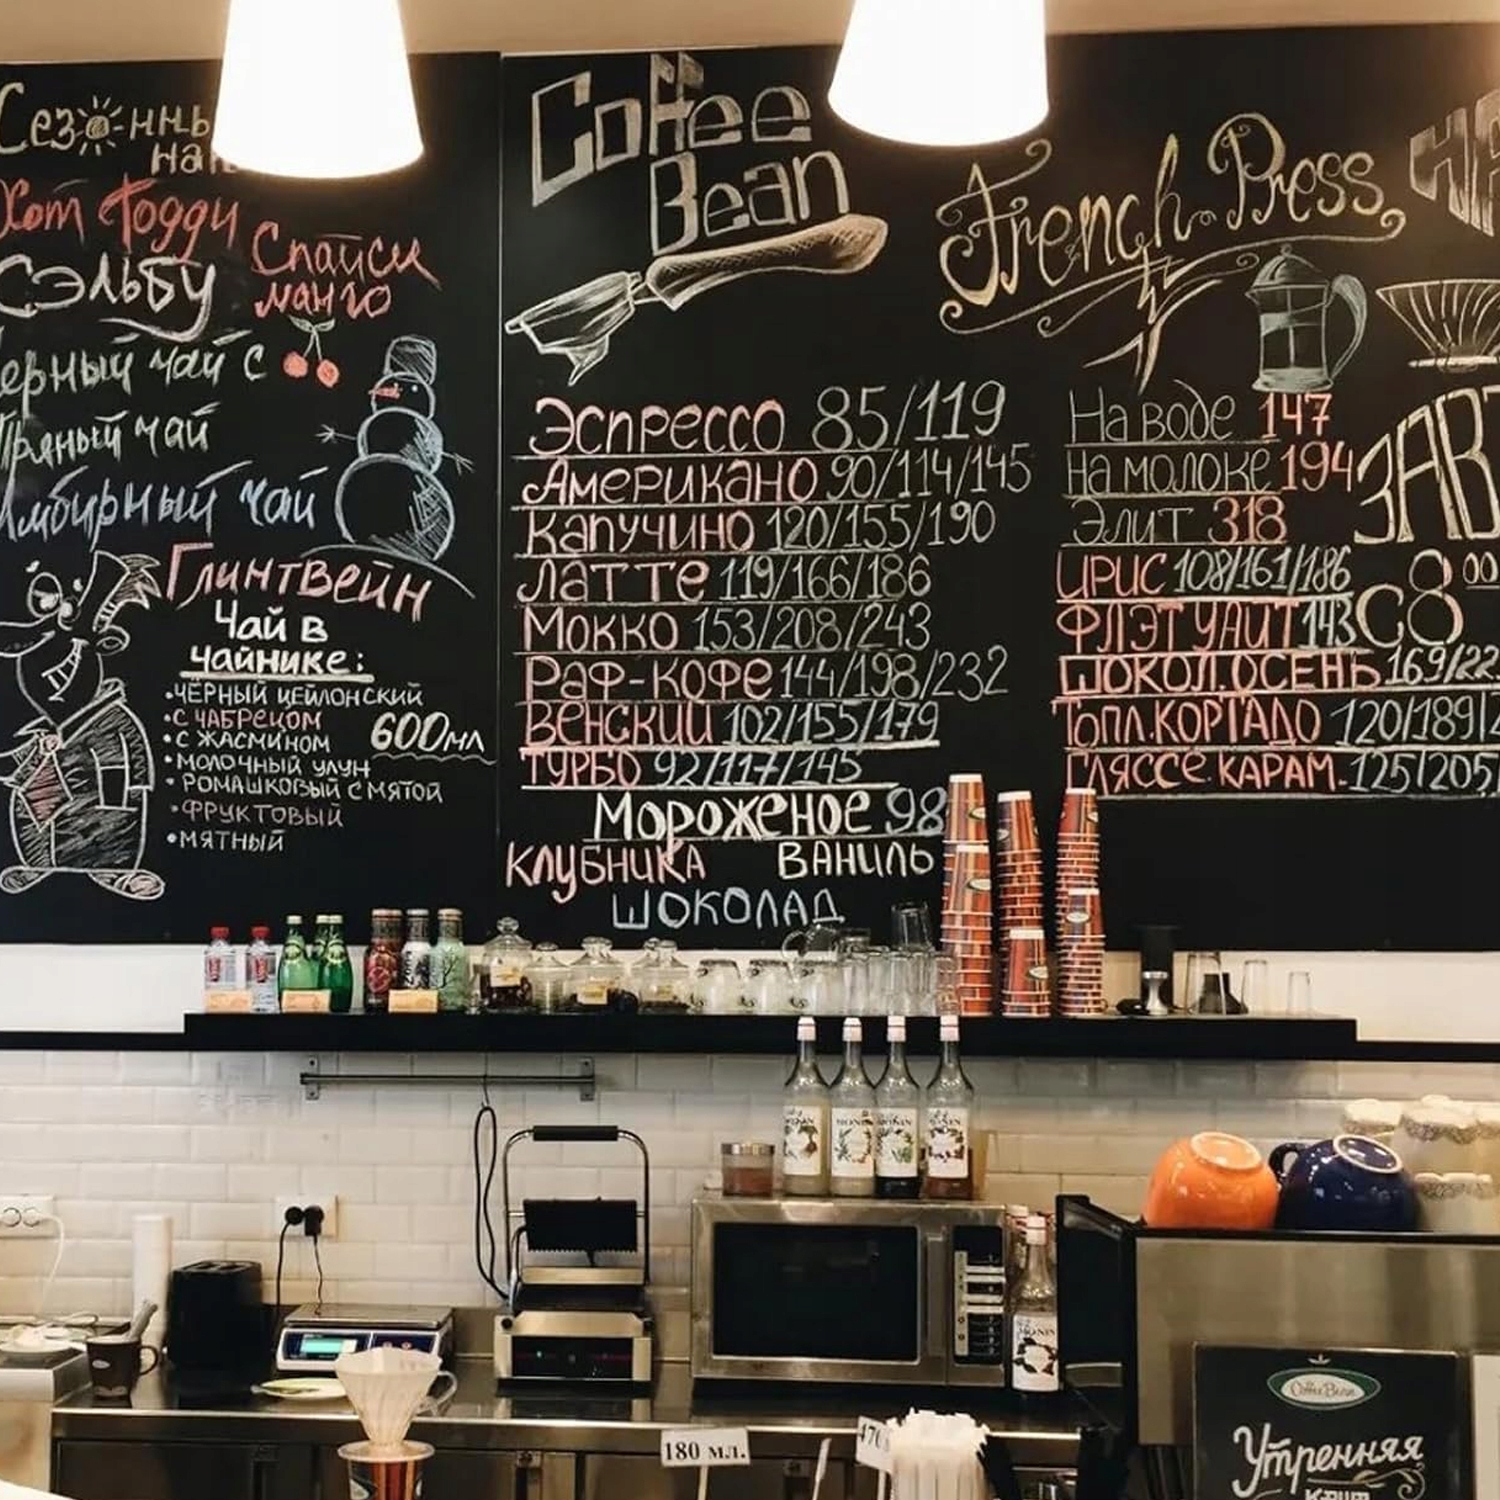 Сез☼нны
нап
Хот Тодди
Сэльбу
Спайси
манго
ерный чай с
Пряный чай
Имбирный чай
Глинтвейн
Чай в
чайнике:
•ЧЁРНЫЙ ЦЕЙЛОНСКИЙ
•С ЧАБРЕЦОМ
•С ЖАСМИНОМ
600мл
•МОЛОЧНЫЙ УЛУН
•РОМАШКОВЫЙ С МЯТОЙ
•ФРУКТОВЫЙ
•МЯТНЫЙ
Coffee
Bean
Эспрессо 85/119
Американо 90/114/145
Капучино 120/155/190
Латте 119/166/186
Мокко 153/208/243
Раф-кофе 144/198/232
Венский 102/155/179
Турбо 92/117/145
Мороженое 98
Клубника Ваниль
Шоколад
French Press
На воде 147
На молоке 194
Элит 318
Ирис 108/161/186
Флэт Уайт 143
Шокол.Осень 169/22
Топл.Кортадо 120/189/2
Глясse Карам. 125/205/
НА
ЗАВТ
С 8 00
MONIN
MONIN
MONIN
MONIN
MONIN
180 мл.
470
Coffee Bean
Утренняя